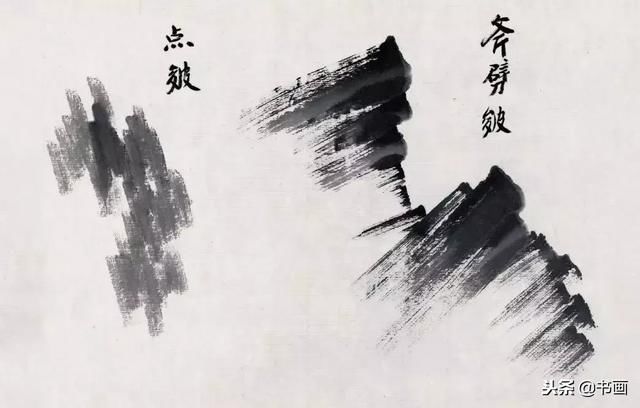 斧劈皴
点皴
头条 @书画